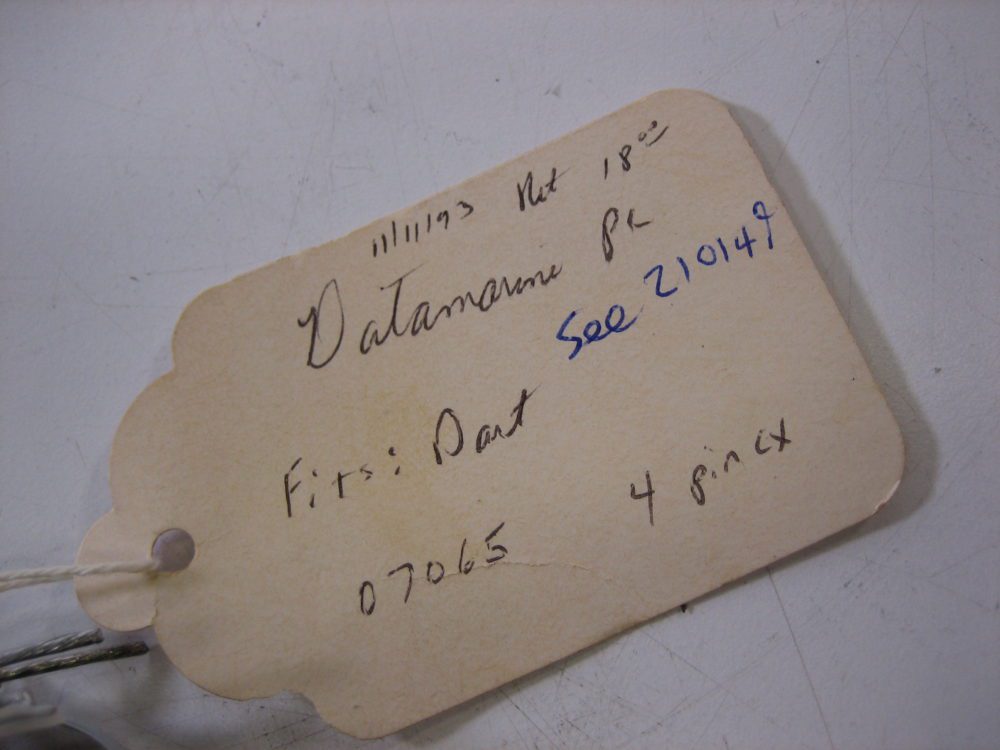 11/11/93 Net 18⁰⁰
Datamarine
See 210149
Fits: Dart
07065 4 pin cx